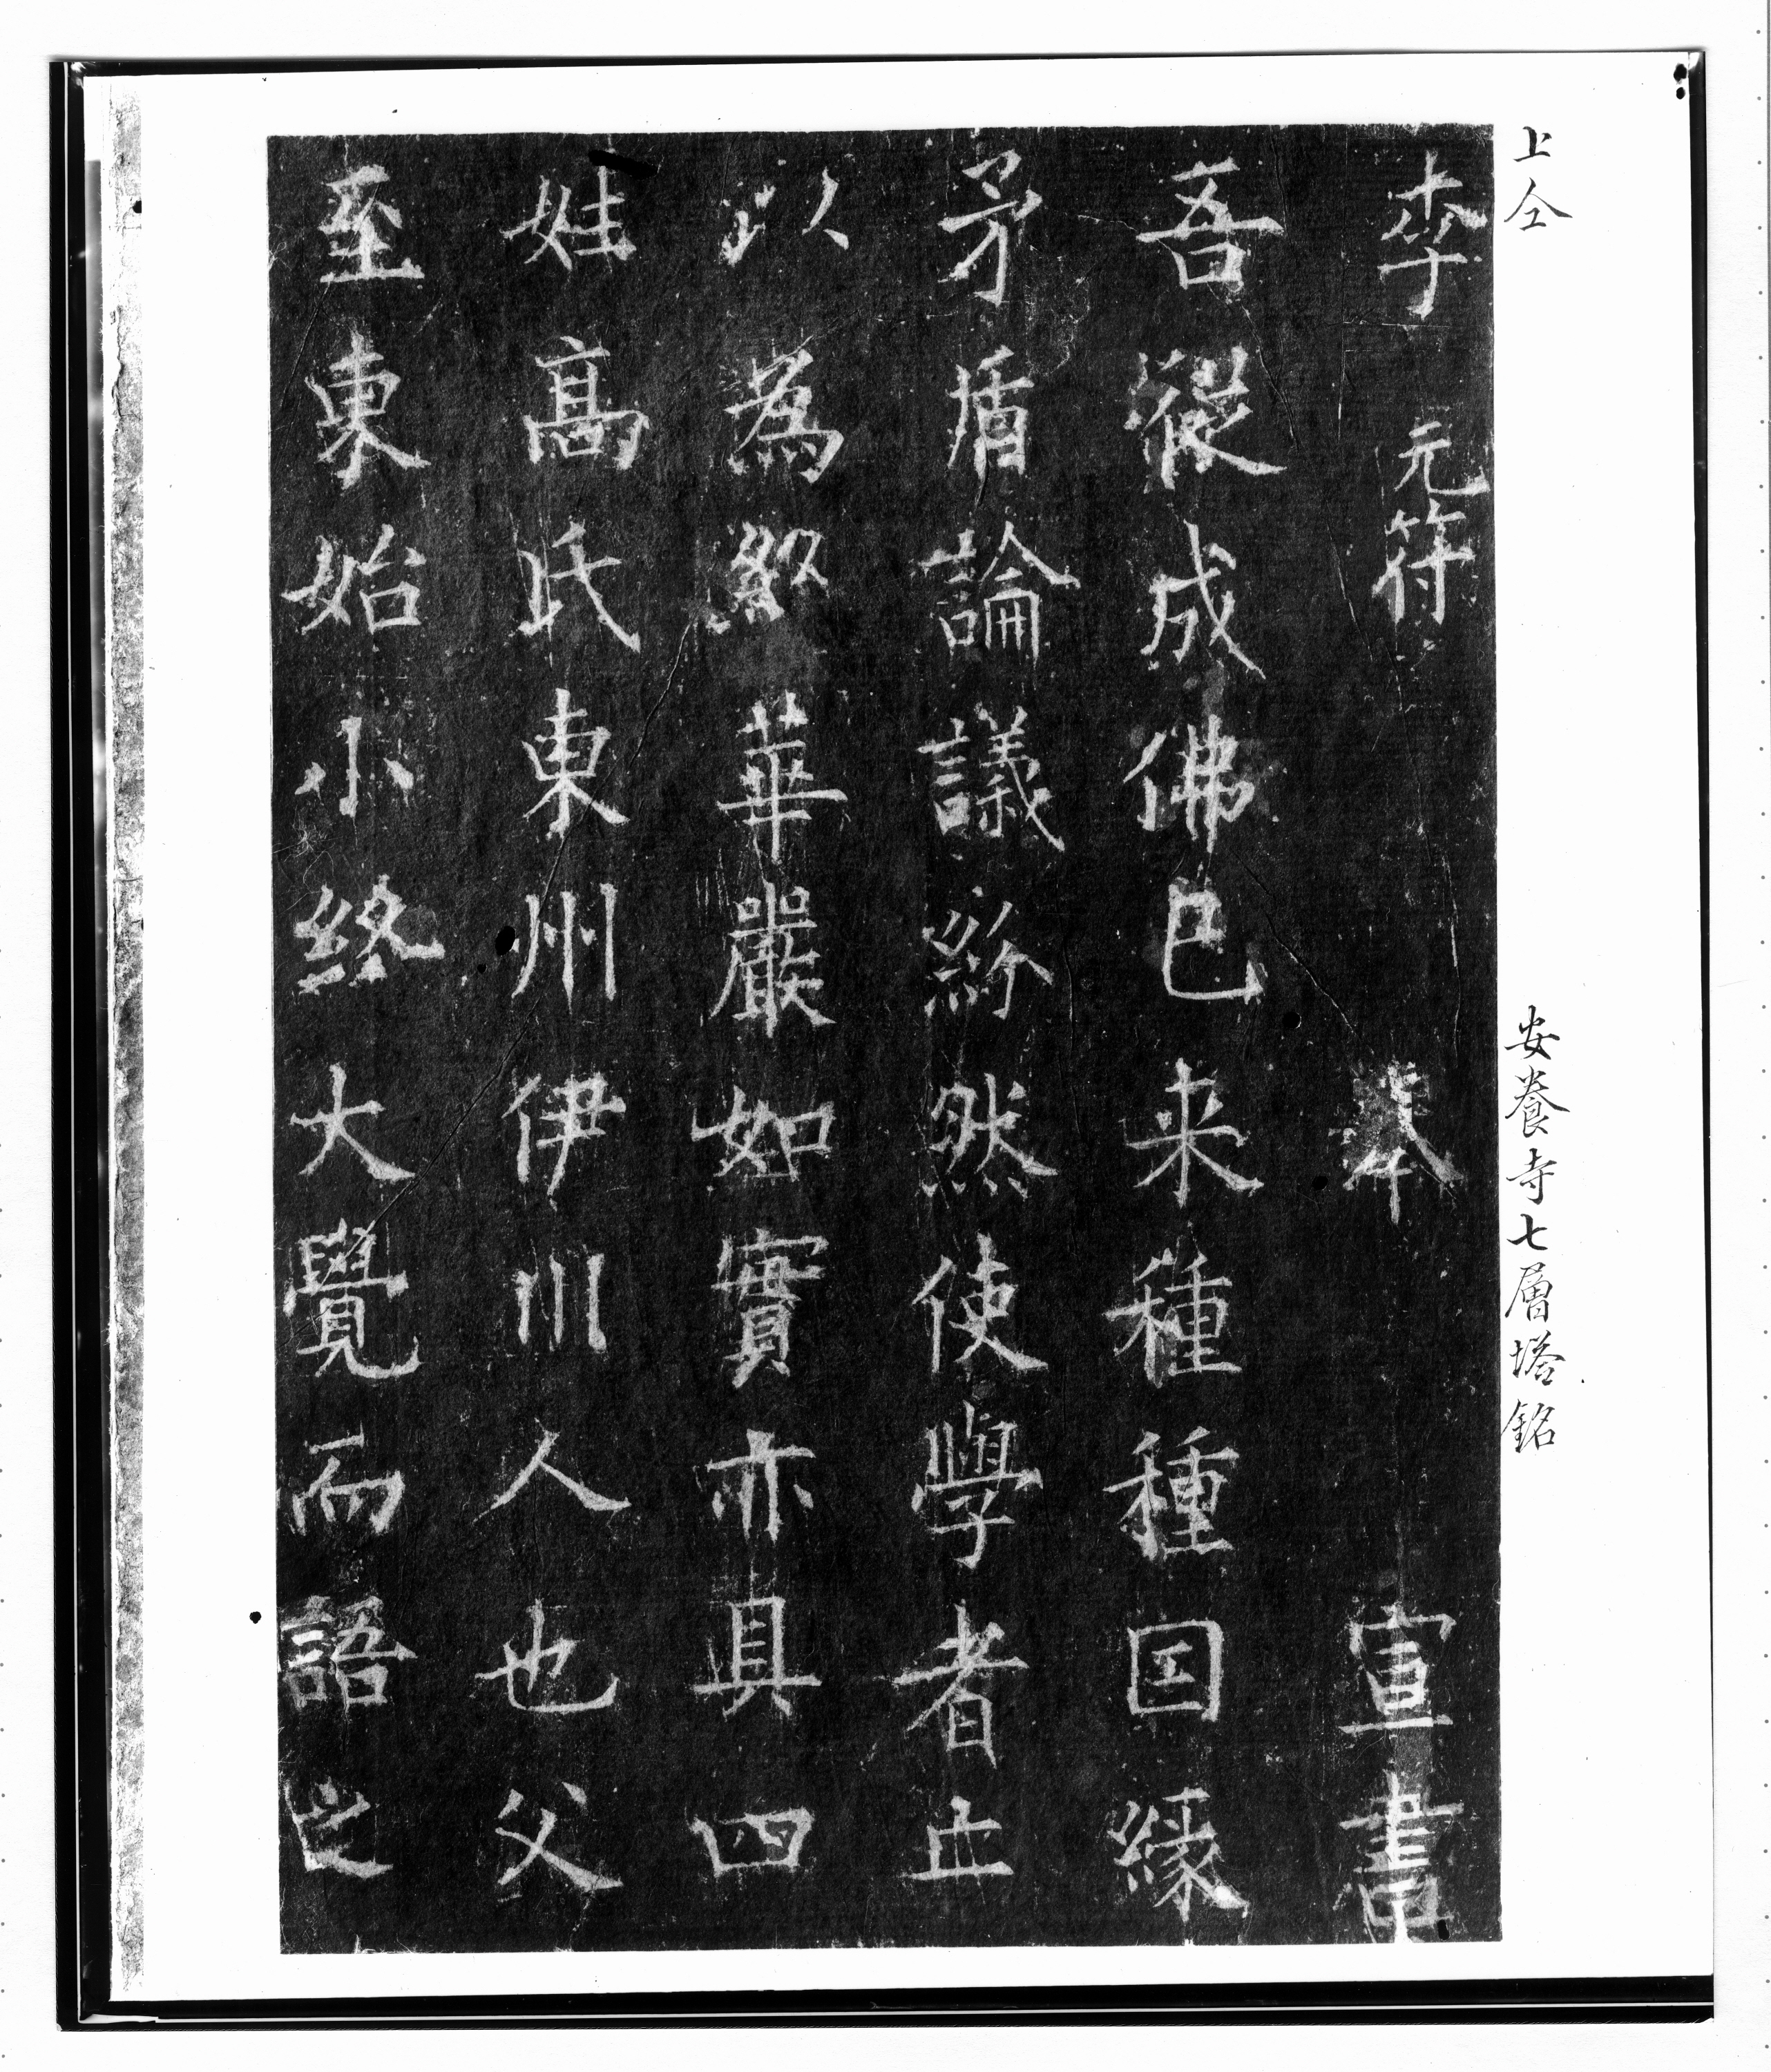 上仝　安養寺七層塔銘
李　元符　奉　宣書
吾從成佛已来種種因緣
矛盾論議紛然使學者止
以為華嚴如實亦具四
姓高氏東州伊川人也父
至東始小終大覺而語之